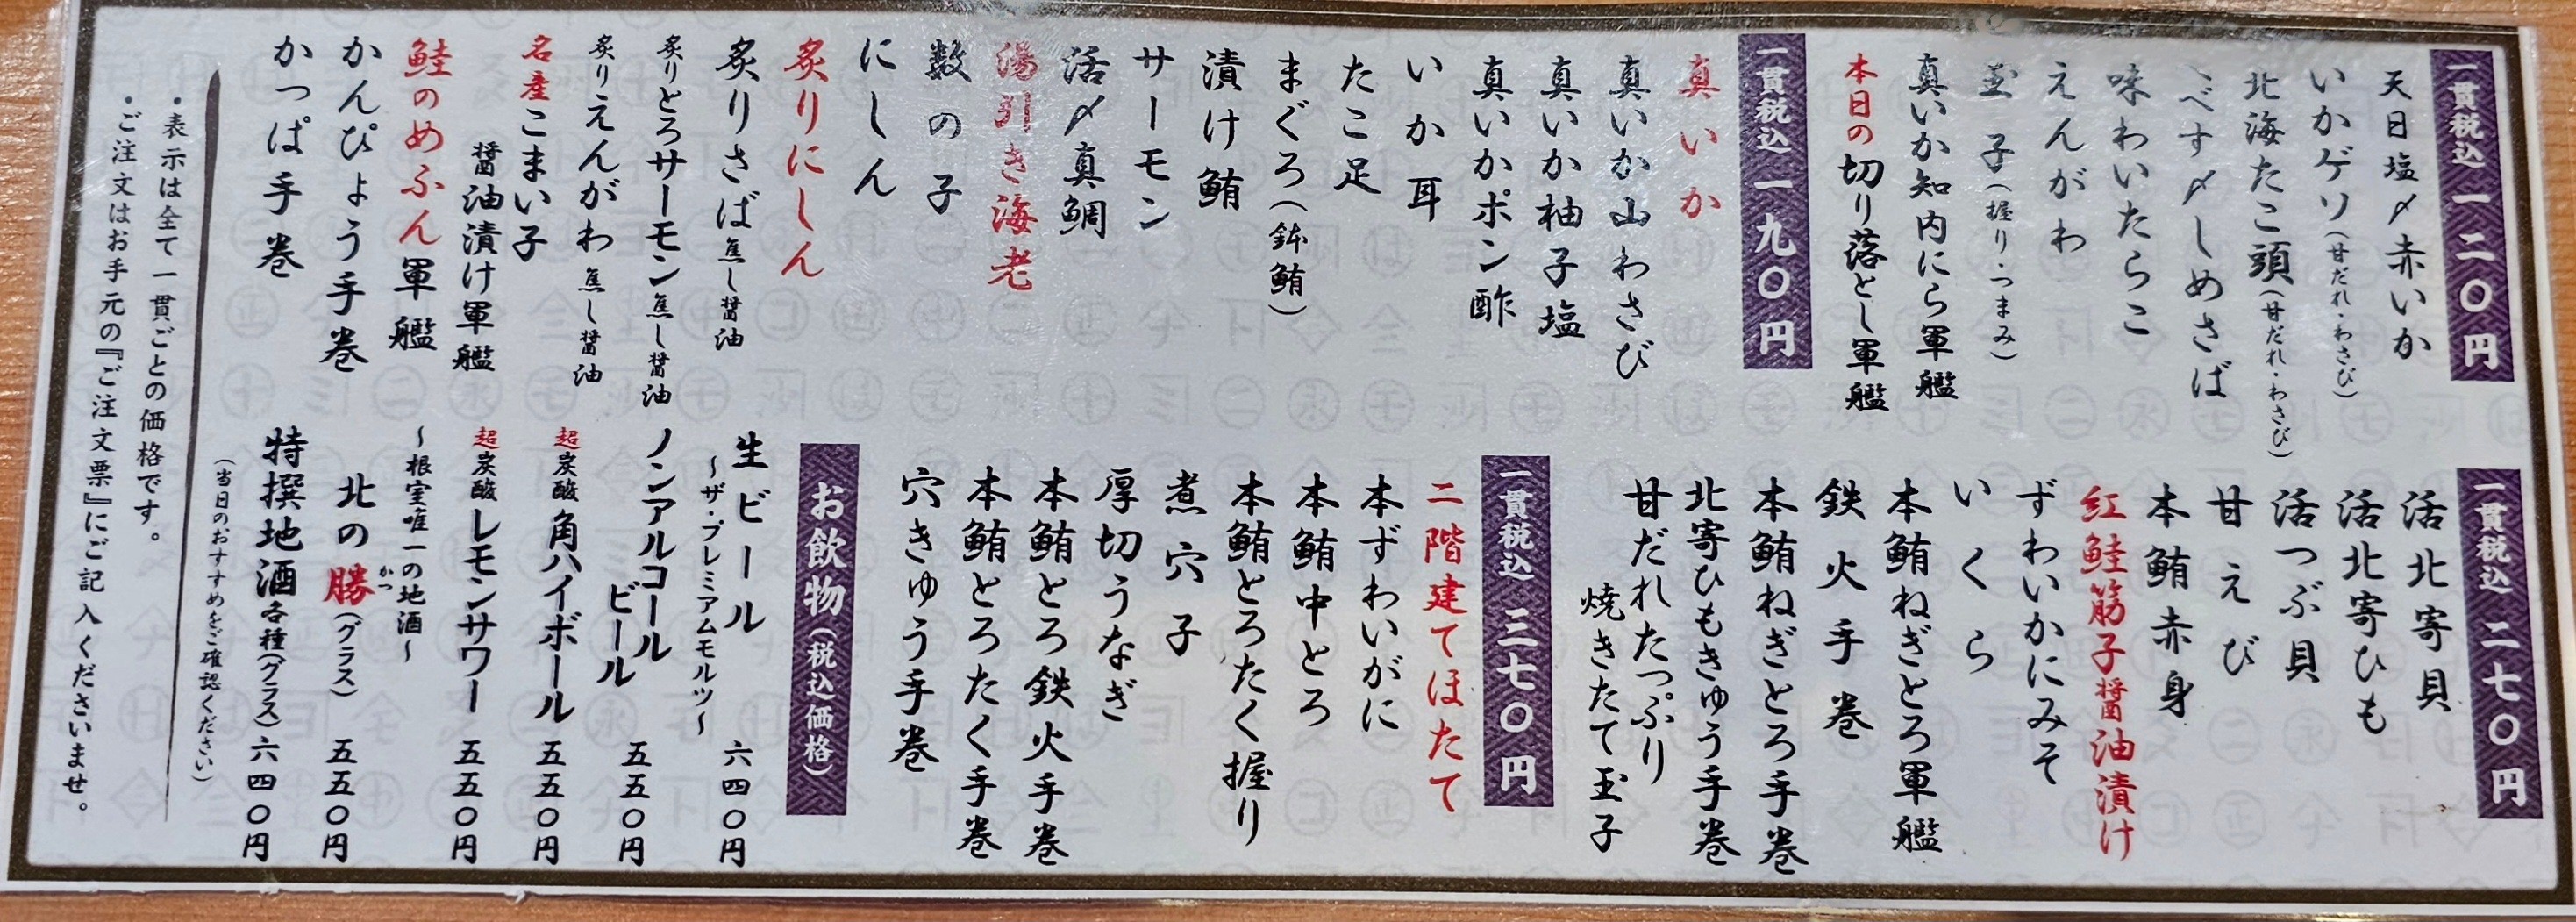 一貫税込 一二〇円
天日塩〆赤いか
いかゲソ（甘だれ・わさび）
北海たこ頭（甘だれ・わさび）
べす〆しめさば
味わいたらこ
えんがわ
子（握り・つまみ）
真いか知内にら軍艦
本日の切り落とし軍艦
一貫税込 一九〇円
真いか
真いか山わさび
真いか柚子塩
真いかポン酢
いか耳
たこ足
まぐろ（鉢鮪）
漬け鮪
サーモン
活〆真鯛
湯引き海老
数の子
にしん
炙りにしん
炙りさば 焦し醤油
炙りとろサーモン 焦し醤油
炙りえんがわ 焦し醤油
名産こまい子
醤油漬け軍艦
鮭のめふん軍艦
かんぴょう手巻
かっぱ手巻
一貫税込 二七〇円
活北寄貝
活北寄ひも
活つぶ貝
甘えび
本鮪赤身
紅鮭筋子醤油漬け
ずわいかにみそ
いくら
本鮪ねぎとろ軍艦
鉄火手巻
本鮪ねぎとろ手巻
北寄ひもきゅう手巻
甘だれたっぷり
焼きたて玉子
一貫税込 三七〇円
二階建てほたて
本ずわいがに
本鮪中とろ
本鮪とろたく握り
煮穴子
厚切うなぎ
本鮪とろ鉄火手巻
本鮪とろたく手巻
穴きゅう手巻
お飲物（税込価格）
生ビール 六四〇円
～ザ・プレミアムモルツ～
ノンアルコール
ビール 五五〇円
超炭酸 角ハイボール 五五〇円
超炭酸 レモンサワー 五五〇円
～根室唯一の地酒～
かつ
北の勝（グラス） 五五〇円
特撰地酒各種（グラス） 六四〇円
（当日のおすすめをご確認ください）
・表示は全て一貫ごとの価格です。
・ご注文はお手元の『ご注文票』にご記入くださいませ。